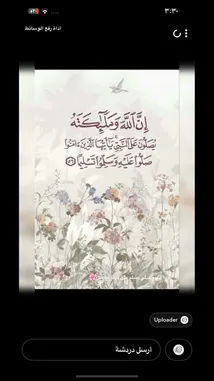 ٣:٣٠
أداة رفع الوسائط
إِنَّ ٱللَّهَ وَمَلَٰٓئِكَتَهُۥ
يُصَلُّونَ عَلَى ٱلنَّبِيِّ يَٰٓأَيُّهَا ٱلَّذِينَ ءَامَنُوا۟
صَلُّوا۟ عَلَيْهِ وَسَلِّمُوا۟ تَسْلِيمًا ٥٦
Uploader
أرسل دردشة